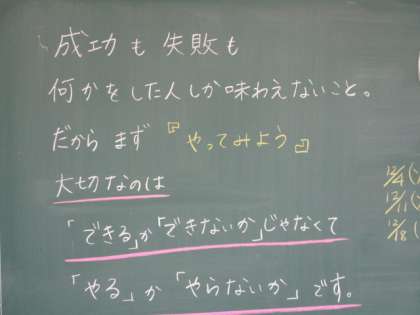 成功も失敗も
何かをした人しか味わえないこと。
だから まず 『やってみよう』
大切なのは
「できる」か「できないか」じゃなくて
「やる」か「やらないか」です。
12/4(
12/11(
12/18(